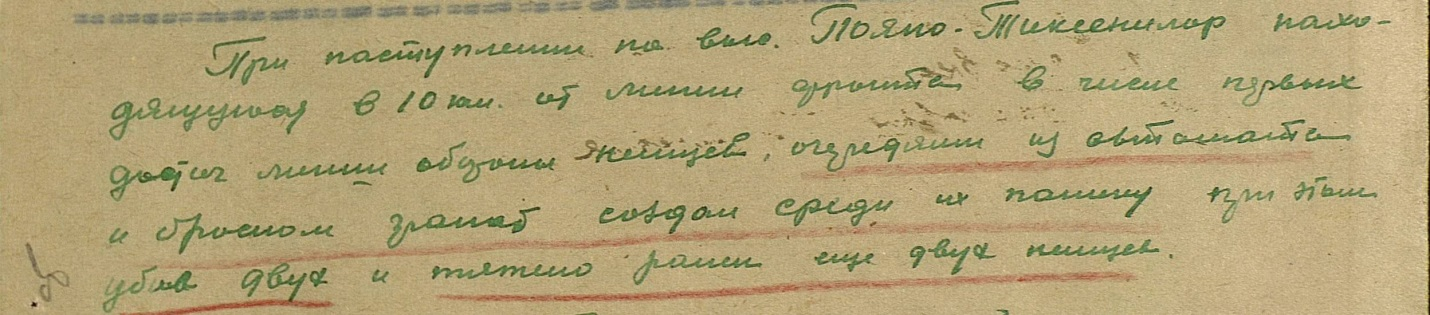 При наступлении на выс. Пояно-Тиксенилор нахо-
дящуюся в 10 км. от линии фронта в числе первых
достиг линии обороны немцев, очередями из автомата
и броском гранат создал среди их панику при этом
убив двух и тяжело ранен еще двух немцев.